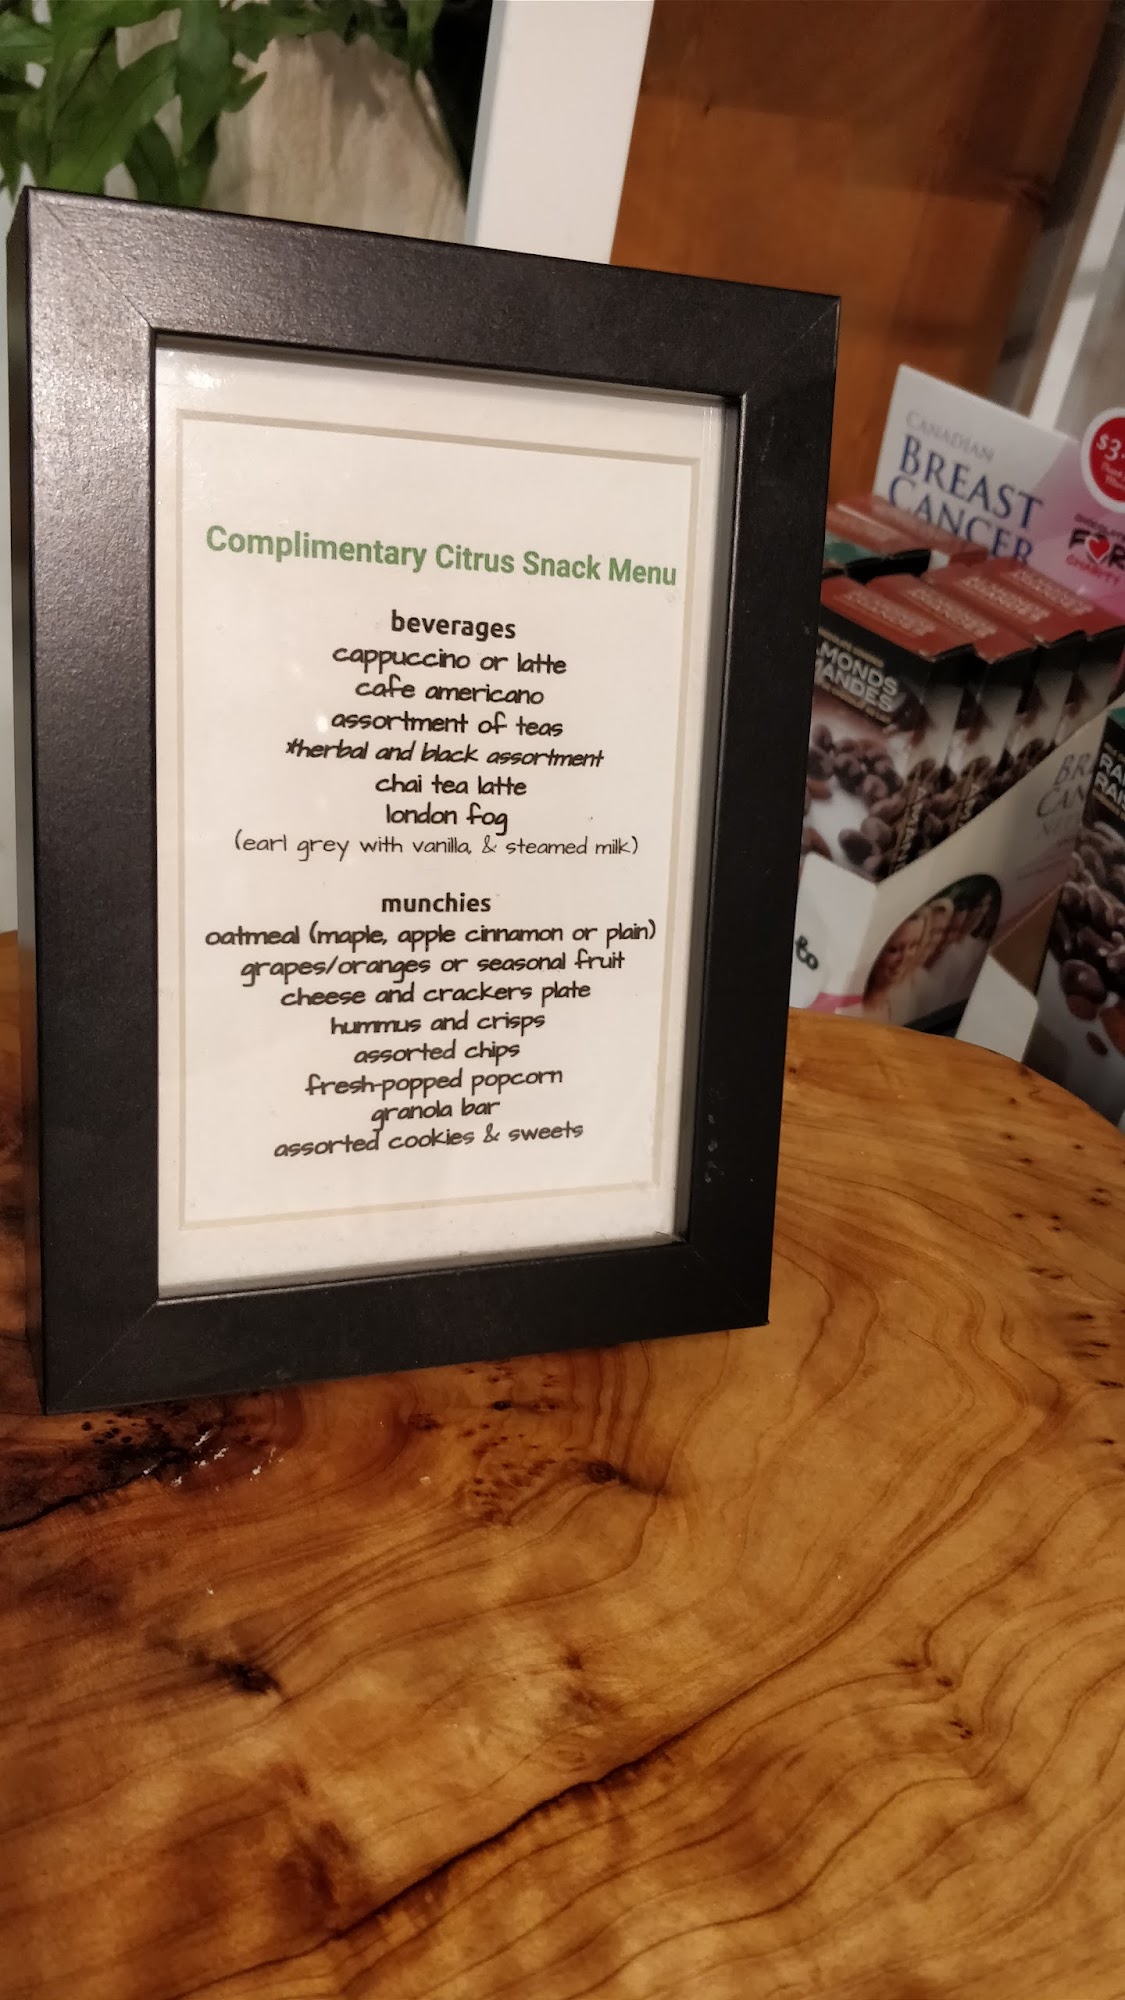 Complimentary Citrus Snack Menu
beverages
cappuccino or latte
cafe americano
assortment of teas
*herbal and black assortment
chai tea latte
london fog
(earl grey with vanilla, & steamed milk)
munchies
oatmeal (maple, apple cinnamon or plain)
grapes/oranges or seasonal fruit
cheese and crackers plate
hummus and crisps
assorted chips
fresh-popped popcorn
granola bar
assorted cookies & sweets
CANADIAN
BREAST
CANCER
$3
FOR
CHARITY